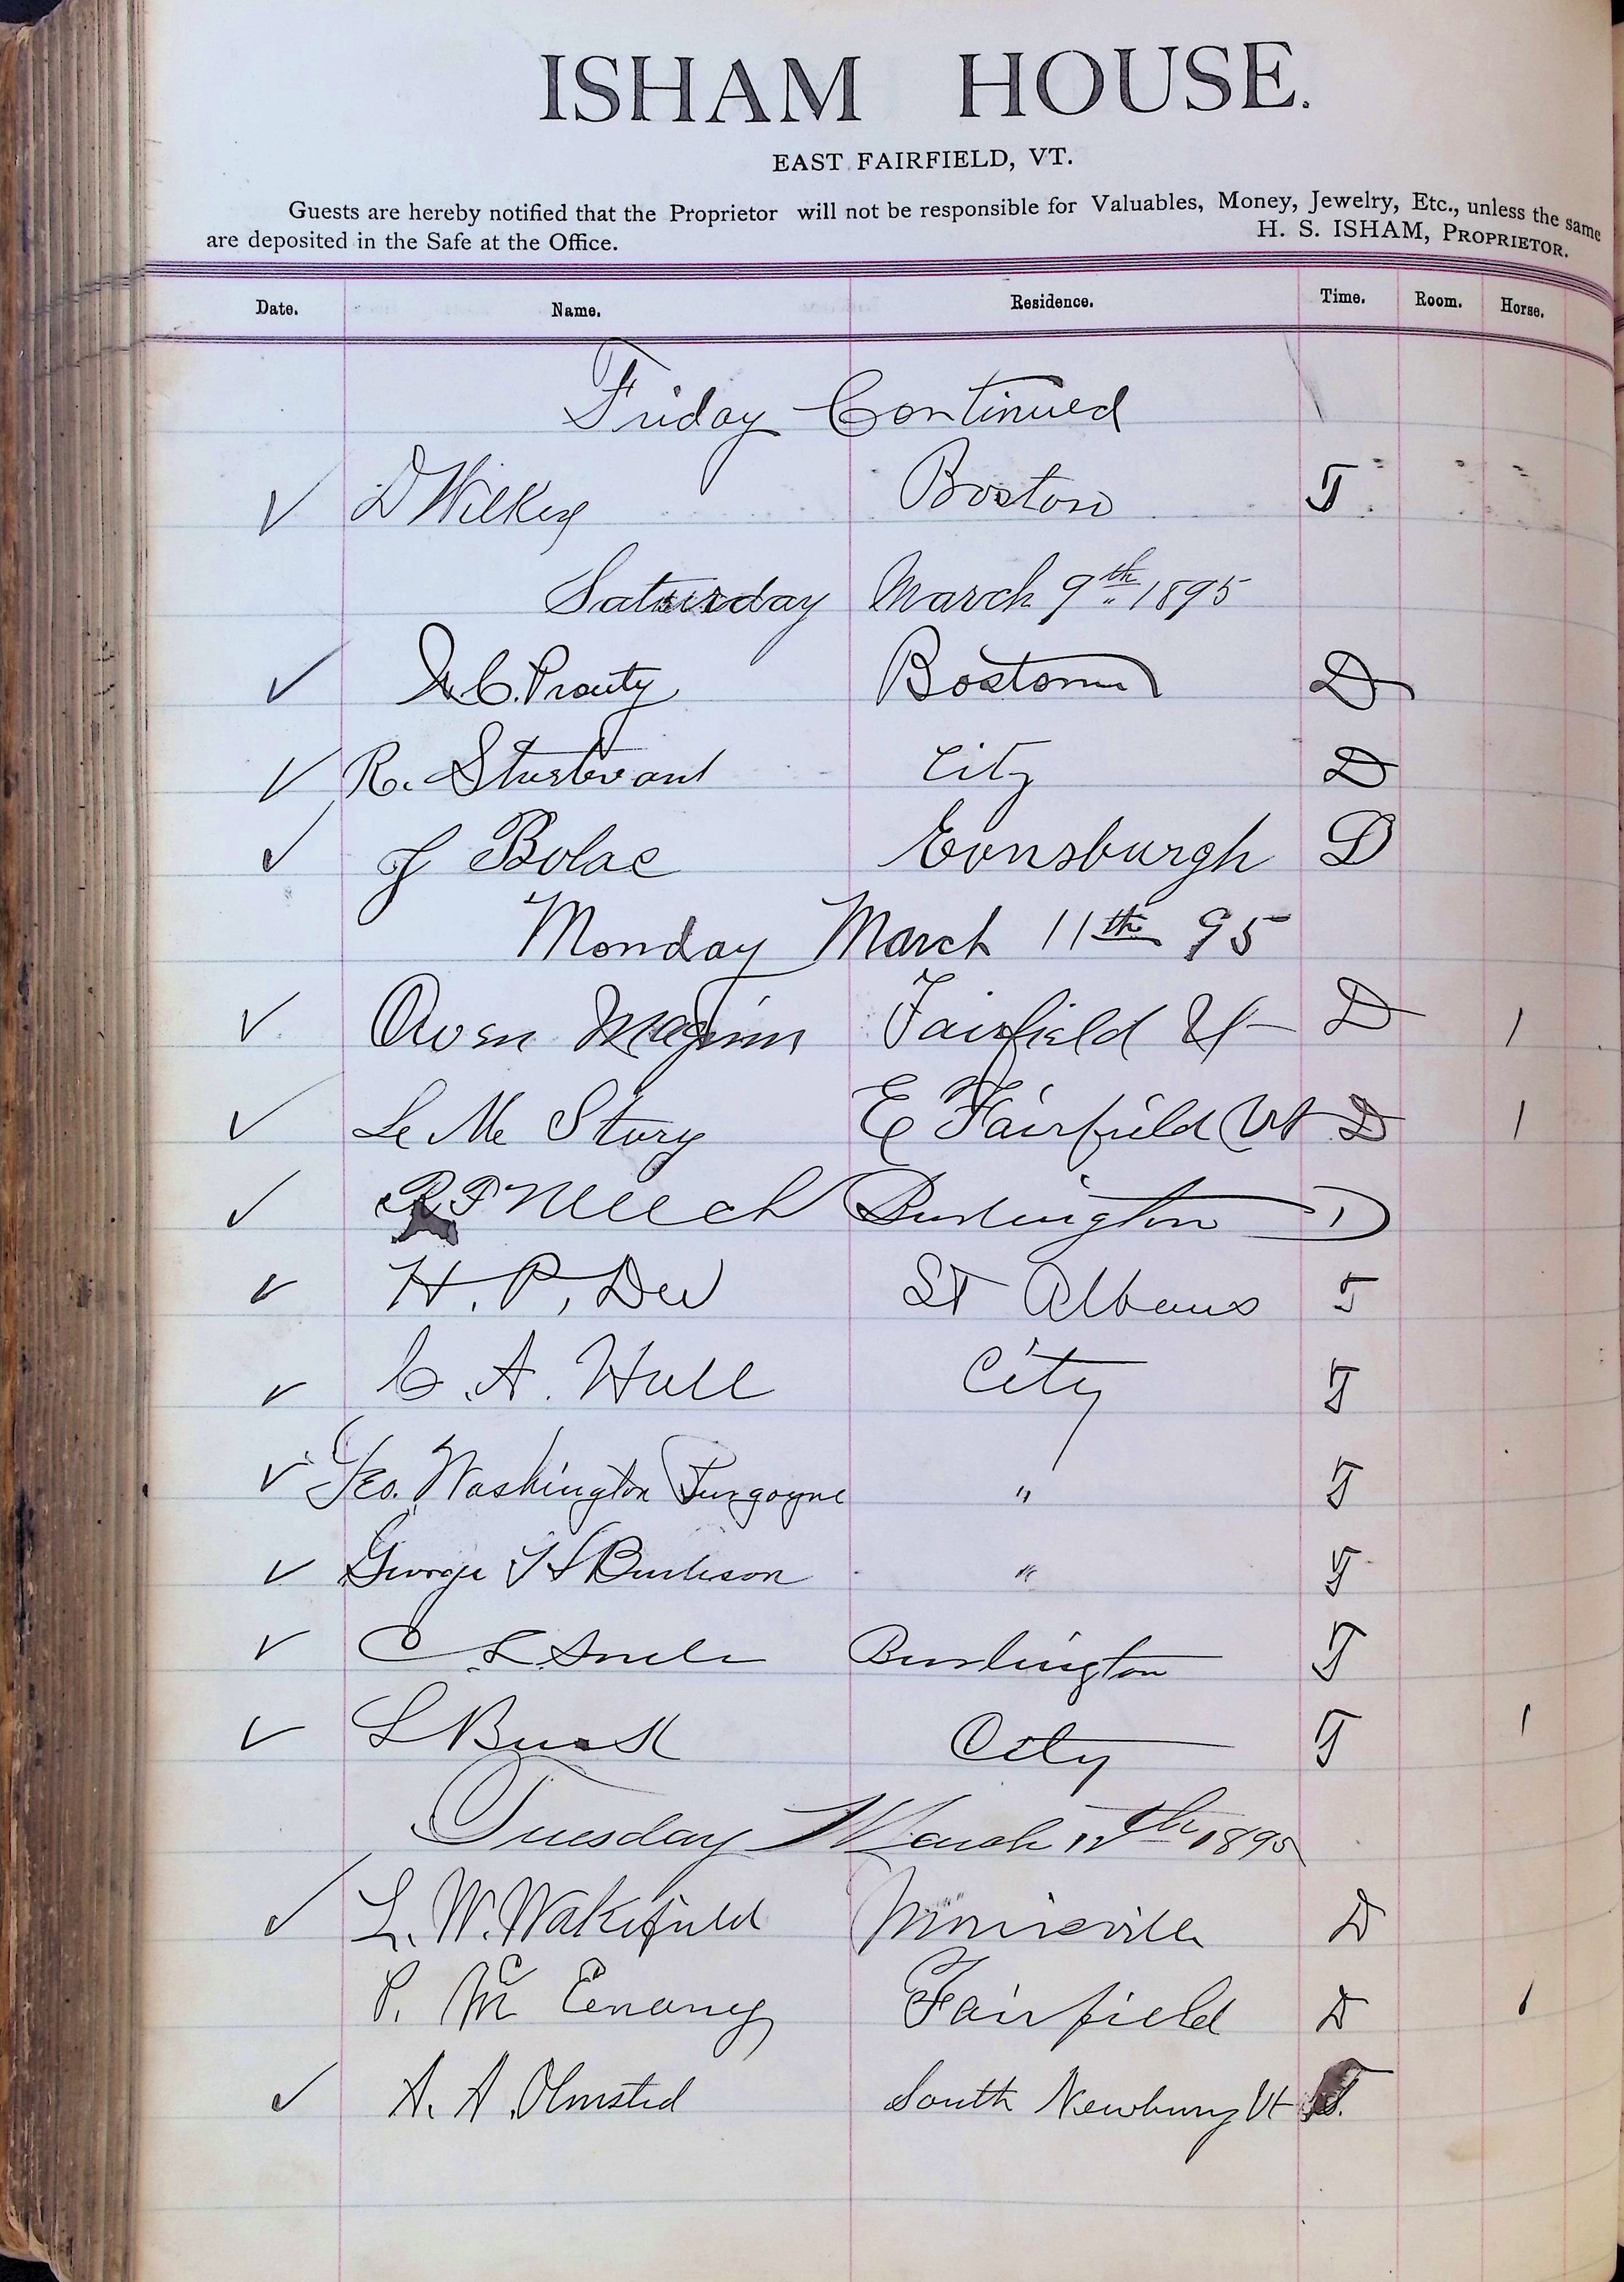 ISHAM HOUSE.
EAST FAIRFIELD, VT.
Guests are hereby notified that the Proprietor will not be responsible for Valuables, Money, Jewelry, Etc., unless the same
are deposited in the Safe at the Office.
H. S. ISHAM, PROPRIETOR.
Date. Name. Residence. Time. Room. Horse.
Friday Continued
✓ D Wilkey Boston T
Saturday March 9th 1895
✓ C. Prouty Boston D
✓ R. Sturtevant City D
✓ J Bolac Eonsburgh D
Monday March 11th 95
✓ Owen Maginn Fairfield Vt D 1
✓ Story E Fairfield Vt D 1
✓ R F Meech Burlington D
✓ H. P. Dee St Albans T
✓ C. A. Hull City T
✓ Geo. Washington Burgoyne " T
✓ George Burleson " T
✓ C Burlington T
✓ L Bush City T 1
Tuesday March 12th 1895
✓ L. W. Wakefield Morrisville D
P. Mc Enany Fairfield D 1
✓ A. A. Olmsted South Newbury Vt